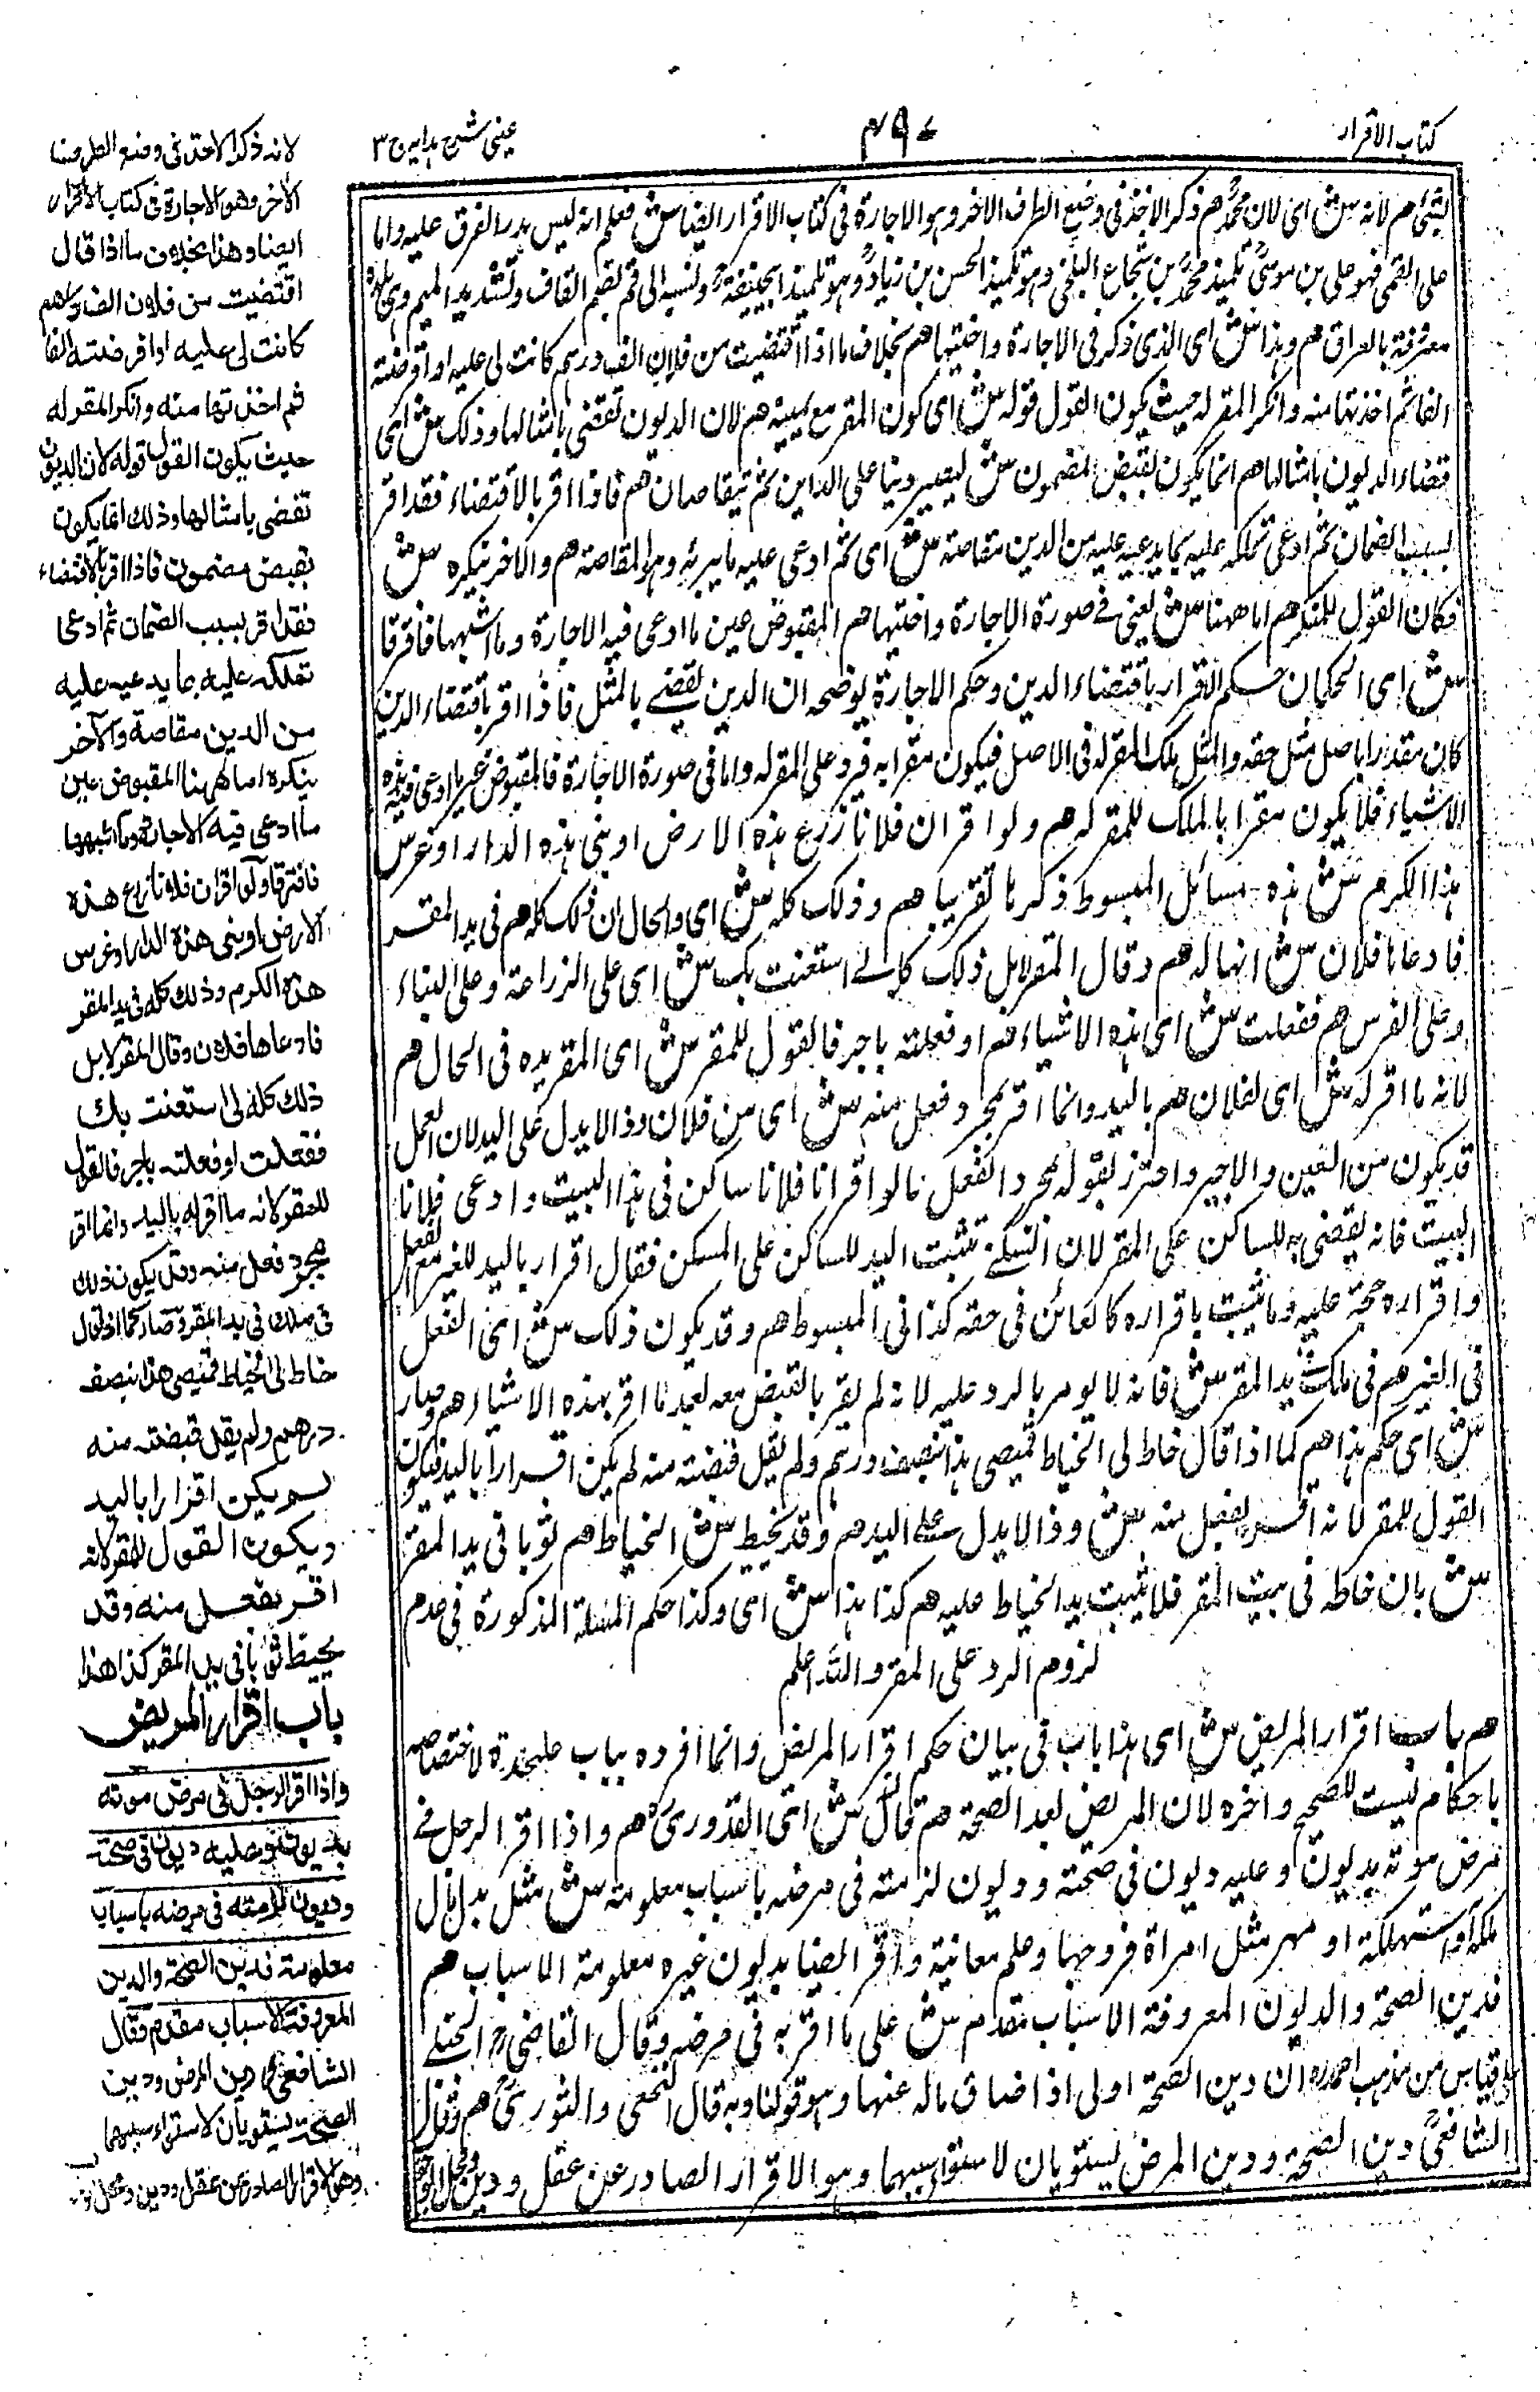 كتاب الاقرار
٤٩٧
عینی شرح ہدایہ ج ٣
بشئ هم لانه ش ای لان محمدؒ هم ذكر الاخذ فی وضع الطرف الاخر وهو الاجارة فی كتاب الاقرار ایضا ش فعلم انه لیس بدر الفرق علیه واما
علی القمی فهو علی بن موسیؒ تلمیذ محمدؒ بن شجاع البلخی وهو تلمیذ الحسن بن زیادؒ وهو تلمیذ ابیحنیفةؒ ونسبه الی قم بضم القاف وتشدید المیم وهی بلدة
معروفة بالعراق هم وهذا ش ای الذی ذكر فی الاجارة واختیها هم بخلاف ما اذا اقتضیت من فلان الف درهم كانت لی علیه او اقرضته
الفا ثم اخذتها منه وانكر المقر له حیث یكون القول قوله ش ای كون المقر مع یمینه هم لان الدیون تقضی بامثالها وذلك ش ای
قضاء الدیون بامثالها هم انما یكون بقبض مضمون ش لیصیر دینا علی الداین ثم یتقاصان هم فاذا اقر بالاقتضاء فقد اقر
بسبب الضمان ثم ادعی تملكه علیه بما یدعیه علیه من الدین مقاصة ش ای ثم ادعی علیه ما یبرئه وهو المقاصة هم والاخر ینكره ش
فكان القول للمنكر هم اما ههنا ش یعنی فی صورة الاجارة واختیها هم المقبوض عین ما ادعی فیه الاجارة وما اشبهها فافترقا
ش ای الحكمان حكم الاقرار باقتضاء الدین وحكم الاجارة یوضحه ان الدین یقضی بالمثل فاذا اقر باقتضاء الدین
كان مقدرا باصل مثل حقه والمثل ملك المقر له فی الاصل فیكون مقرا به فیرد علی المقر له واما فی صورة الاجارة فالمقبوض عین ما ادعی فیه هذه
الاشیاء فلا یكون مقرا بالملك للمقر له هم ولو اقر ان فلانا زرع هذه الارض او بنی هذه الدار او غرس
هذا الكرم ش هذه مسائل المبسوط ذكرها تفریبا هم وذلك كله ش ای والحال ان ذلك كله هم فی ید المقر
فادعاها فلان ش انها له هم وقال المقر لا بل ذلك كله لی استعنت بك ش ای علی الزراعة وعلی البناء
وعلی الغرس هم ففعلت ش ای هذه الاشیاء هم او فعلته باجر فالقول للمقر ش ای المقر یده فی الحال هم
لانه ما اقر له ش ای لفلان هم بالید وانما اقر بمجرد فعل منه ش ای من فلان وذا لا یدل علی الید لان العمل
قد یكون من المعین والاجیر واحترز بقوله بمجرد الفعل عما لو اقر ان فلانا ساكن فی هذا البیت وادعی فلانا
البیت فانه یقضی به للساكن علی المقر لان السكنی تثبت الید للساكن علی المسكن فقال اقرار بالید للغیر مع الفعل
واقراره حجة علیه وما یثبت باقراره كالمعائن فی حقه كذا فی المبسوط هم وقد یكون ذلك ش ای الفعل
فی الغیر هم فی ملك فی ید المقر ش فانه لا یومر بالرد علیه لانه لم یقر بالقبض معه بعد ما اقر بهذه الاشیاء هم وصار
ش ای حكم هذا هم كما اذا قال خاط لی الخیاط قمیصی هذا بنصف درهم ولم یقل قبضته منه لم یكن اقرارا بالید فیكون
القول للمقر لانه اقر بفعل منه ش وذا لا یدل علی الید هم وقد یخیط ش الخیاط هم ثوبا فی ید المقر
ش بان خاطه فی بیت المقر فلا یثبت ید الخیاط علیه هم كذا هذا ش ای وكذا حكم المسئلة المذكورة فی عدم
لزوم الرد علی المقر والله اعلم
هم باب اقرار المریض ش ای هذا باب فی بیان حكم اقرار المریض وانما افرده بباب علیحدة لاختصاصه
باحكام لیست للصحیح واخره لان المریض بعد الصحة هم قال ش ای القدوریؒ هم واذا اقر الرجل فی
مرض موته بدیون وعلیه دیون فی صحته ودیون لزمته فی مرضه باسباب معلومة ش مثل بدل مال
ملكه او استهلكه او مهر مثل امراة تزوجها وعلم معاینة واقر ایضا بدیون غیره معلومة الاسباب هم
فدین الصحة والدیون المعروفة الاسباب مقدم ش علی ما اقر به فی مرضه وقال القاضیؒ الحنبلی
قیاس من مذهب احمدؒ ان دین الصحة اولی اذا ضاق ماله عنها وهو قولنا وبه قال النخعی والثوریؒ هم وقال
الشافعیؒ دین الصحة ودین المرض یستویان لاستواء سببهما وهو الاقرار الصادر عن عقل ودین
لانه ذكر الاخذ فی وضع الطرف
الآخر وهو الاجارة فی كتاب الاقرار
ایضا وهذا بخلاف ما اذا قال
اقتضیت من فلان الف درهم
كانت لی علیه او اقرضته الفا
ثم اخذتها منه وانكر المقر له
حیث یكون القول قوله لان الدیون
تقضی بامثالها وذلك انما یكون
بقبض مضمون فاذا اقر بالاقتضاء
فقد اقر بسبب الضمان ثم ادعی
تملكه علیه بما یدعیه علیه
من الدین مقاصة والآخر
ینكره اما ههنا المقبوض عین
ما ادعی فیه الاجارة وما اشبهها
فافترقا ولو اقر ان فلانا زرع هذه
الارض او بنی هذه الدار او غرس
هذا الكرم وذلك كله فی ید المقر
فادعاها فلان وقال المقر لا بل
ذلك كله لی استعنت بك
ففعلت او فعلته باجر فالقول
للمقر لانه ما اقر له بالید وانما اقر
بمجرد فعل منه وقد یكون ذلك
فی ملك فی ید المقر وصار كما اذا قال
خاط لی الخیاط قمیصی هذا بنصف
درهم ولم یقل قبضته منه
لم یكن اقرارا بالید
ویكون القول للمقر لانه
اقر بفعل منه وقد
یخیط ثوبا فی ید المقر كذا هذا
باب اقرار المریض
واذا اقر الرجل فی مرض موته
بدیون وعلیه دیون فی صحته
ودیون لزمته فی مرضه باسباب
معلومة فدین الصحة والدین
المعروفة الاسباب مقدم وقال
الشافعیؒ دین المرض ودین
الصحة یستویان لاستواء سببهما
وهو الاقرار الصادر عن عقل ودین